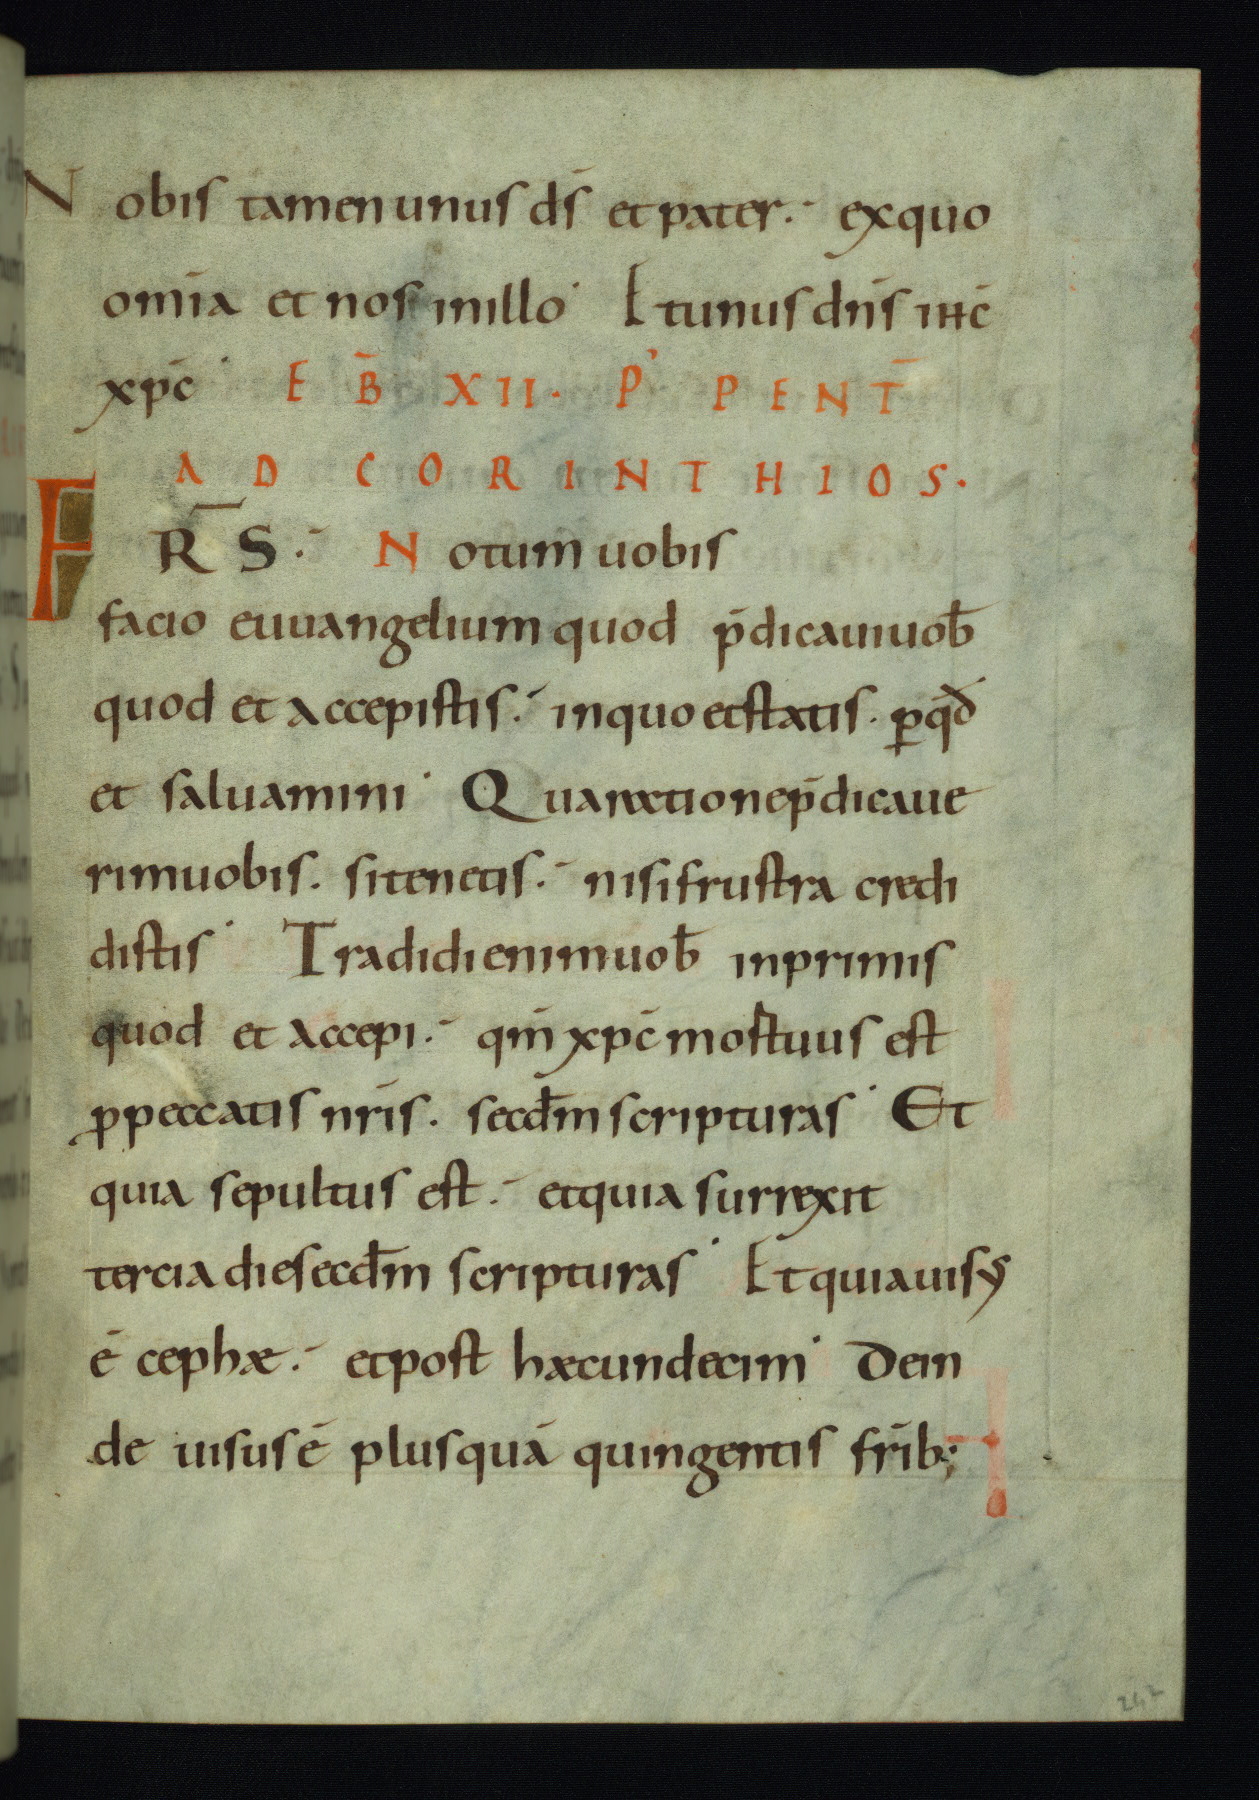 Nobis tamen unus ds̄ et pater. exquo
om̄ia et nos inillo Et unus dn̄s ihc̄
xpc̄ E B̄ XII. P' PENT̄
AD CORINTHIOS.
FR̄S. Notum uobis
facio euuangelium quod p̄dicaui uob̄
quod et accepistis. inquo et statis. ꝑ qđ
et saluamini Qua rationep̄dicaue
rimuobis. sitenetis. nisi frustra credi
distis Tradidi enimuob̄ inprimis
quod et accepi. qm̄ xpc̄ mortuus est
ꝓpeccatis nr̄is. secd̄m scripturas Et
quia sepultus est. etquia surrexit
tercia die secd̄m scripturas Et quia uisus
ē cephæ. etpost hæc undecim Dein
de uisus ē plusquā quingentis fr̄ib;
242